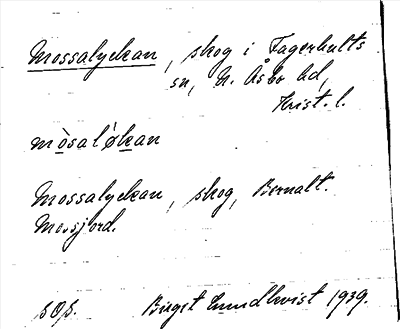 Mossalyckan, skog i Fagerhults
sn, N. Åsbo hd,
Krist. l.
mòsalỳkan
Mossalyckan, skog, Bernalt.
Mossjord.
Birgit Lundkvist 1939.